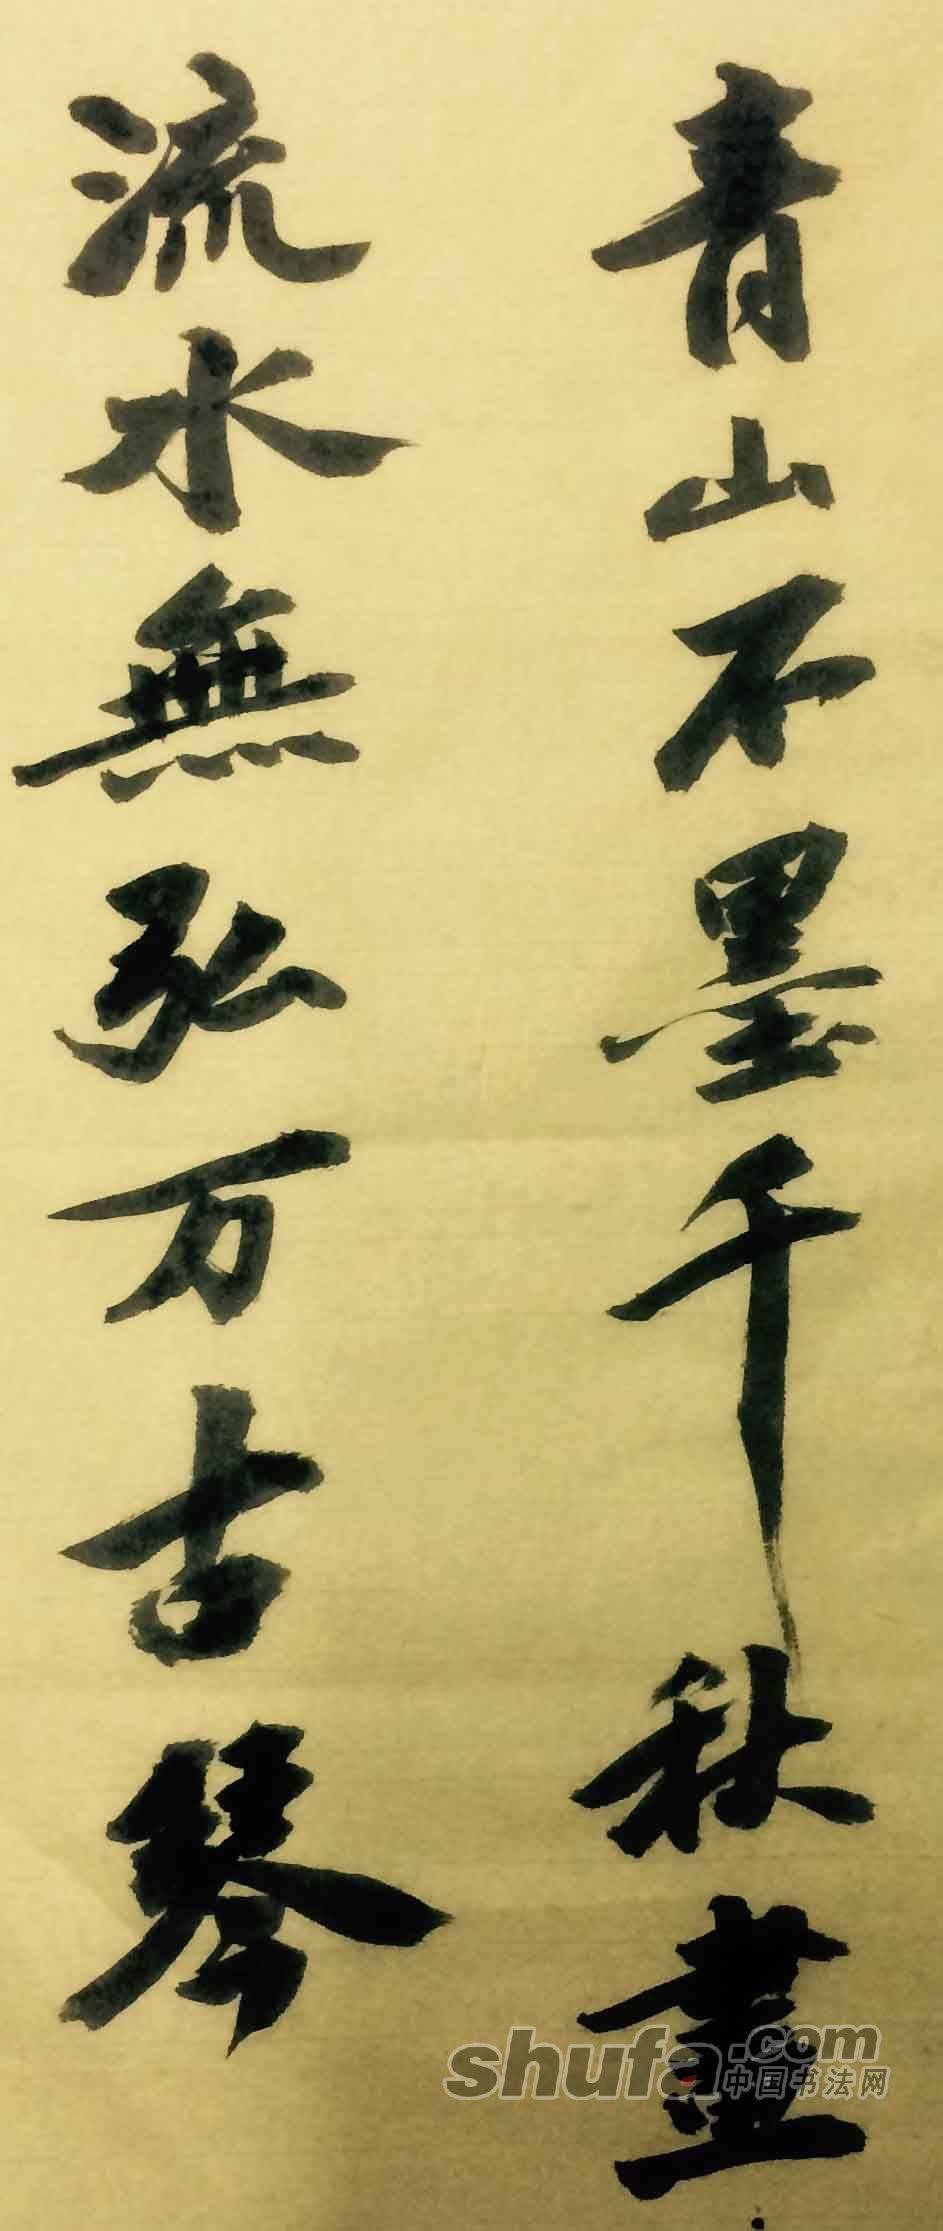 青山不墨千秋畫
流水無弘万古琴
shufa.com
中国书法网